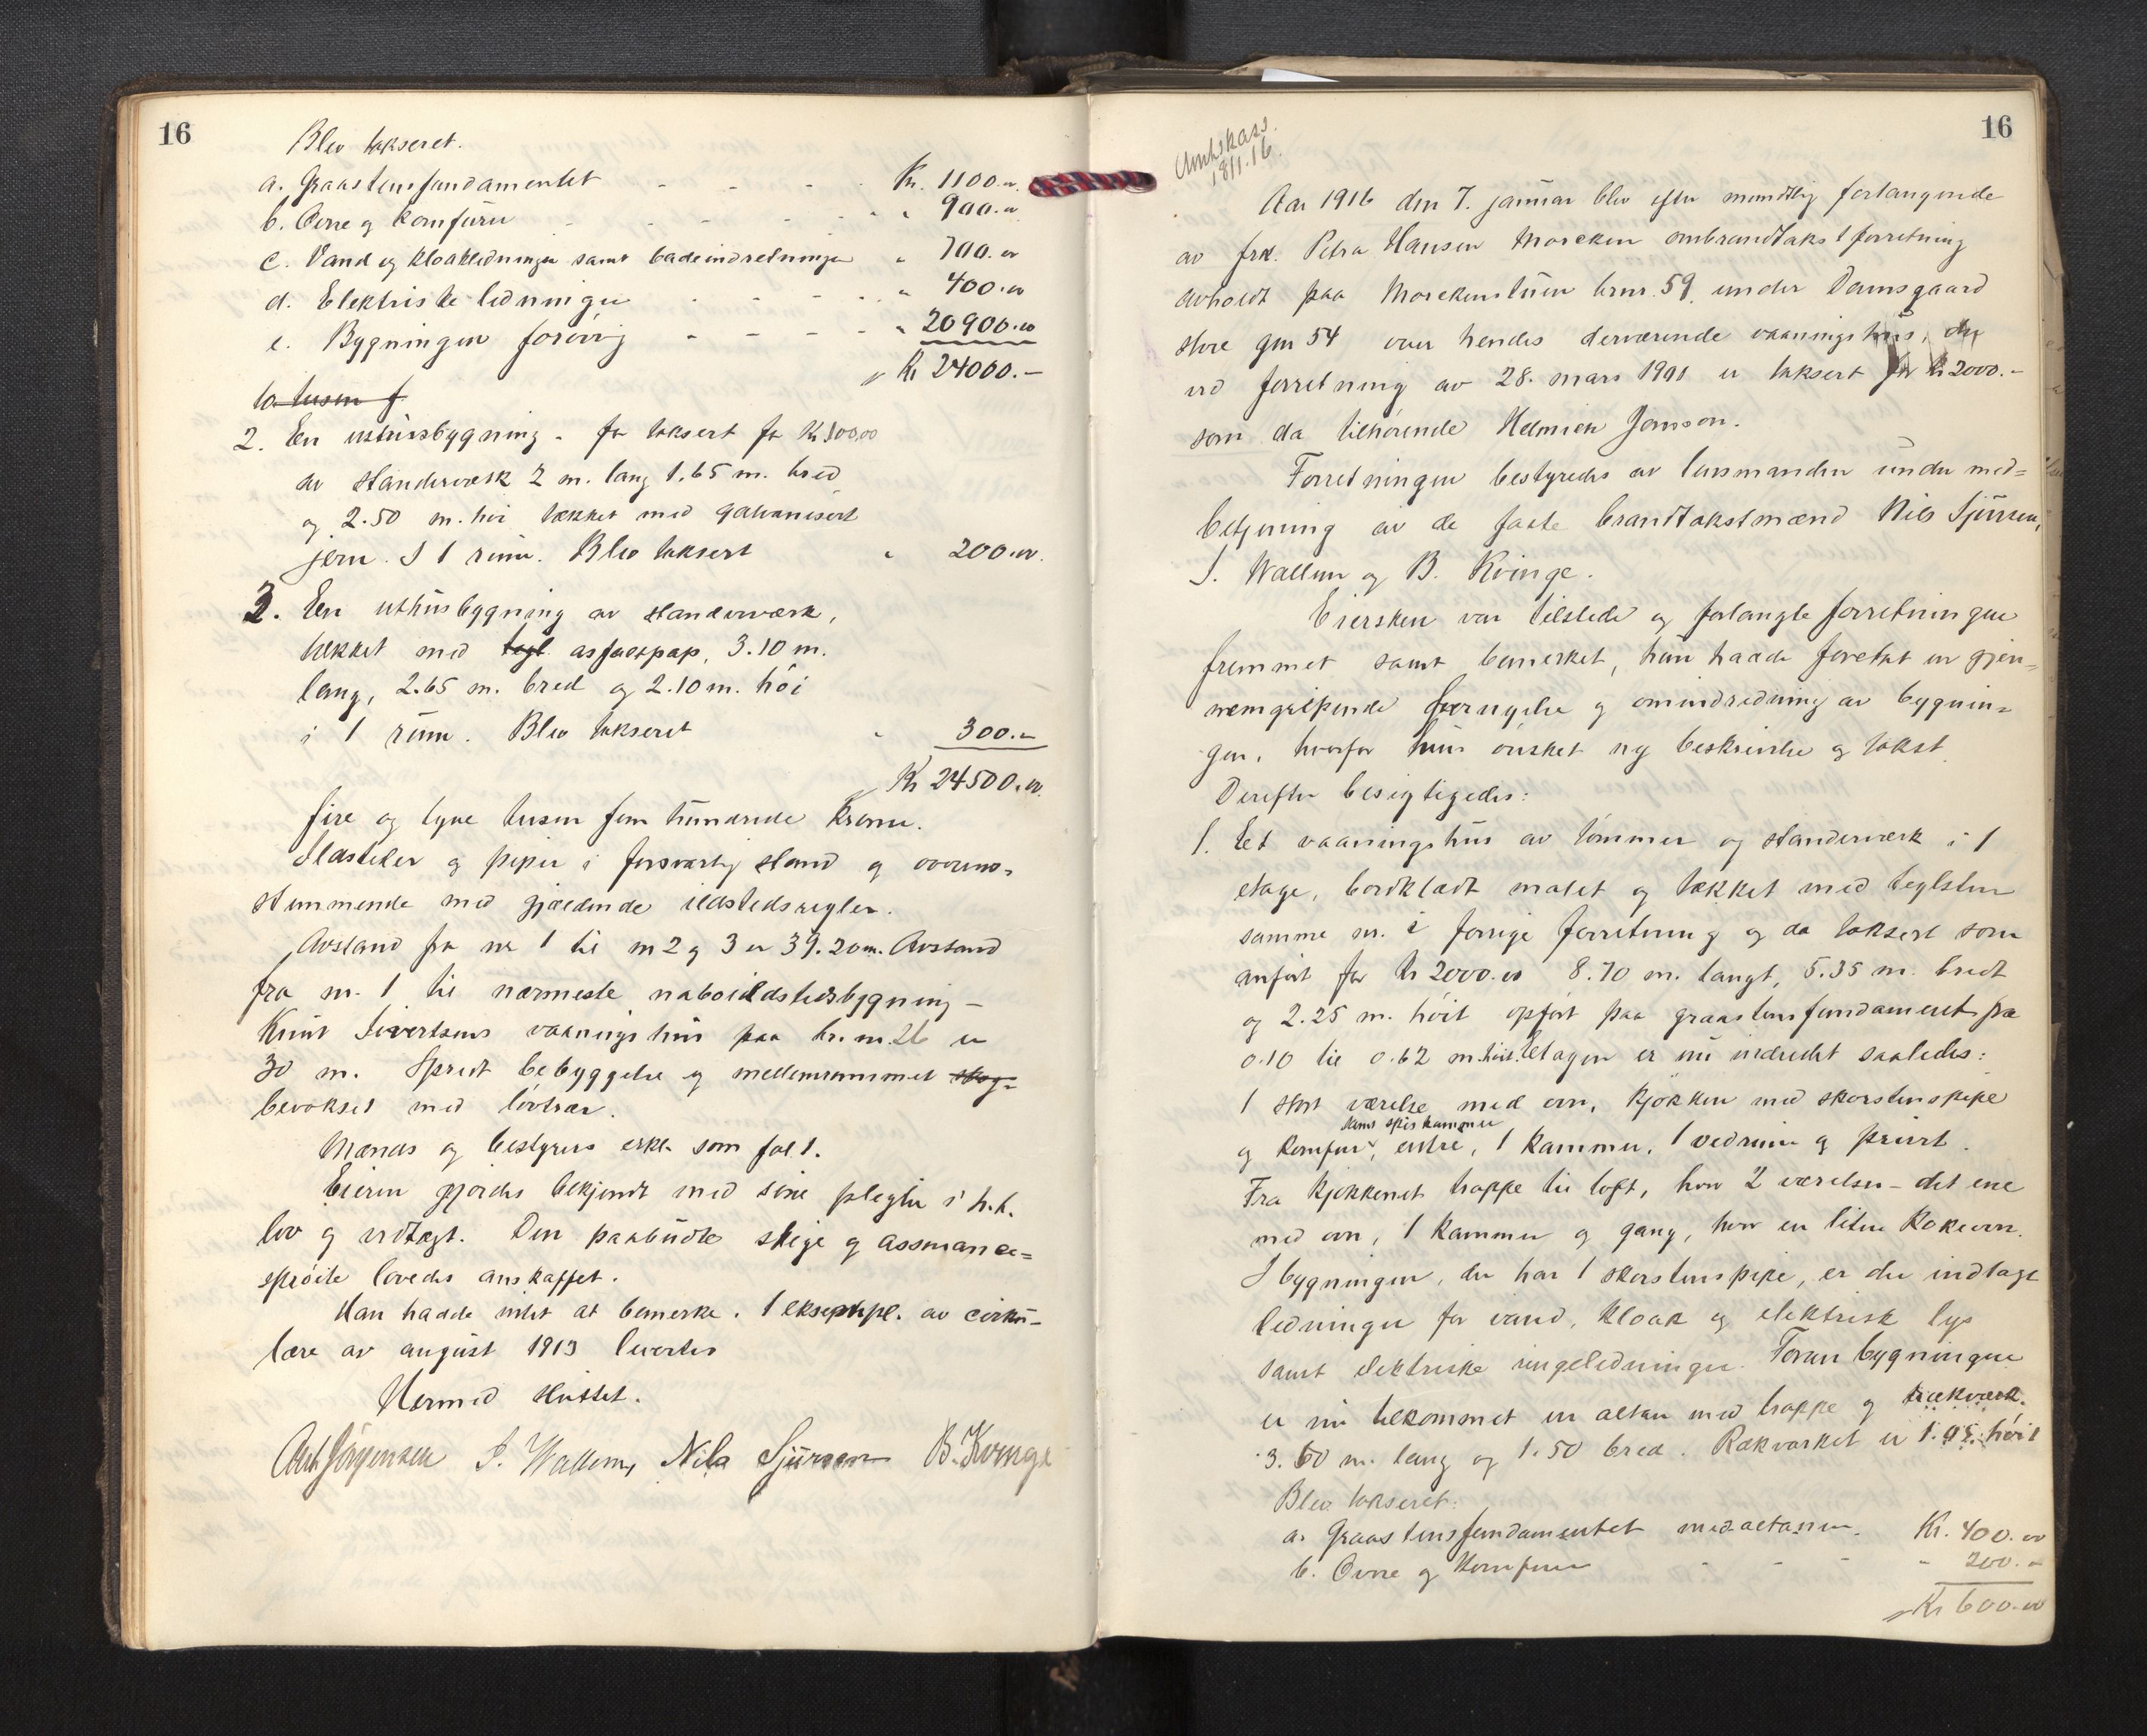 16
Blev takseret.
a. Graastensfundamentet - - - Kr. 1100.00
b. Ovne og komfurer - - - - " 900.00
c. Vand og kloakledninger samt badeindretninger " 700.00
d. Elektriske ledninger - - - " 400.00
e. Bygningen forøvrig - - - - " 20900.00
Kr 24000.-
2. En uthusbygning - før taksert for Kr 100,00
av standerværk 2 m. lang 1.65 m. bred
og 2.50 m. høi tækket med galvanisert
jern. I 1 rum. Blev taksert " 200.00.
3. En uthusbygning av standerværk,
tækket med tegl asfaltpap, 3.10 m.
lang, 2.65 m. bred og 2.10 m. høi
i 1 rum. Blev takseret " 300.-
Kr 24500.00.
fire og tyve tusen fem hundrede kroner.
Ildsteder og piper i forsvarlig stand og overens-
stemmende med gjældende ildstedsregler.
Avstand fra nr 1 til nr 2 og 3 er 39.20 m. Avstand
fra nr. 1 til nærmeste naboildstedsbygning -
Knut Sivertsens vaaningshus paa br.nr. 26 er
30 m. Spredt bebyggelse og mellemrummet skog-
bevokset med løvtrær.
Mænds og bestyrers erkl. som fol. 1.
Eieren gjordes bekjendt med sine plegter i h.t.
lov og vedtægt. Den paabudte stige og assurance=
sprøite lovedes anskaffet.
Han hadde intet at bemerke. 1 eksempl. av cirku-
lære av august 1913 levertes
Hermed sluttet.
Ant Jørgensen S. Wallem, Nils Sjursen B. Kvinge
16
Amtskass.
18/1.16.
Aar 1916 den 7. januar blev efter mundtlig forlangende
av frk. Petra Hansen Morcken ombrandtakstforretning
avholdt paa Morckenstuen brnr. 59 under Damsgaard
store gnr 54 over hendes derværende vaaningshus, der
ved forretning av 28. mars 1901 er taksert for Kr 2000.-
som da tilhørende Helmich Janson.
Forretningen bestyredes av lensmanden under med=
betjening av de faste brandtakstmænd Nils Sjursen,
S. Wallem og B. Kvinge.
Eiersken var tilstede og forlangte forretningen
fremmet samt bemerket, hun hadde foretat en gjen=
nemgripende fornyelse og omindredning av bygnin=
gen, hvorfor hun ønsket ny beskrivelse og takst.
Derefter besigtigedes:
1. Et vaaningshus av tømmer og standerværk i 1
etage, bordklædt malet og tækket med teglsten
samme nr. i forrige forretning og da taksert som
anført for Kr 2000.00 8.70 m. langt, 5.35 m. bredt
og 2.25 m. høit opført paa graastensfundament fra
0.10 til 0.62 m. høit. Etagen er nu indredet saaledes:
1 stort værelse med ovn, kjøkken med skorstenspipe
samt spiskammer
og komfur, entre, 1 kammer, 1 vedrum og privet.
Fra kjøkkenet trappe til loft, hvor 2 værelser - det ene
med ovn, 1 kammer og gang, hvor en liten kokeovn.
I bygningen, der har 1 skorstenspipe, er der indlagt
ledninger for vand, kloak og elektrisk lys
samt elektriske ringeledninger. Foran bygningen
er nu tilkommet en altan med trappe og rækverk.
3.60 m. lang og 1.50 bred. Rækverket er 1.05 høit
Blev takseret:
a. Graastensfundamentet med altanen. Kr. 400.00
b. Ovne og Komfurer - - - " 200.-
Kr 600.00